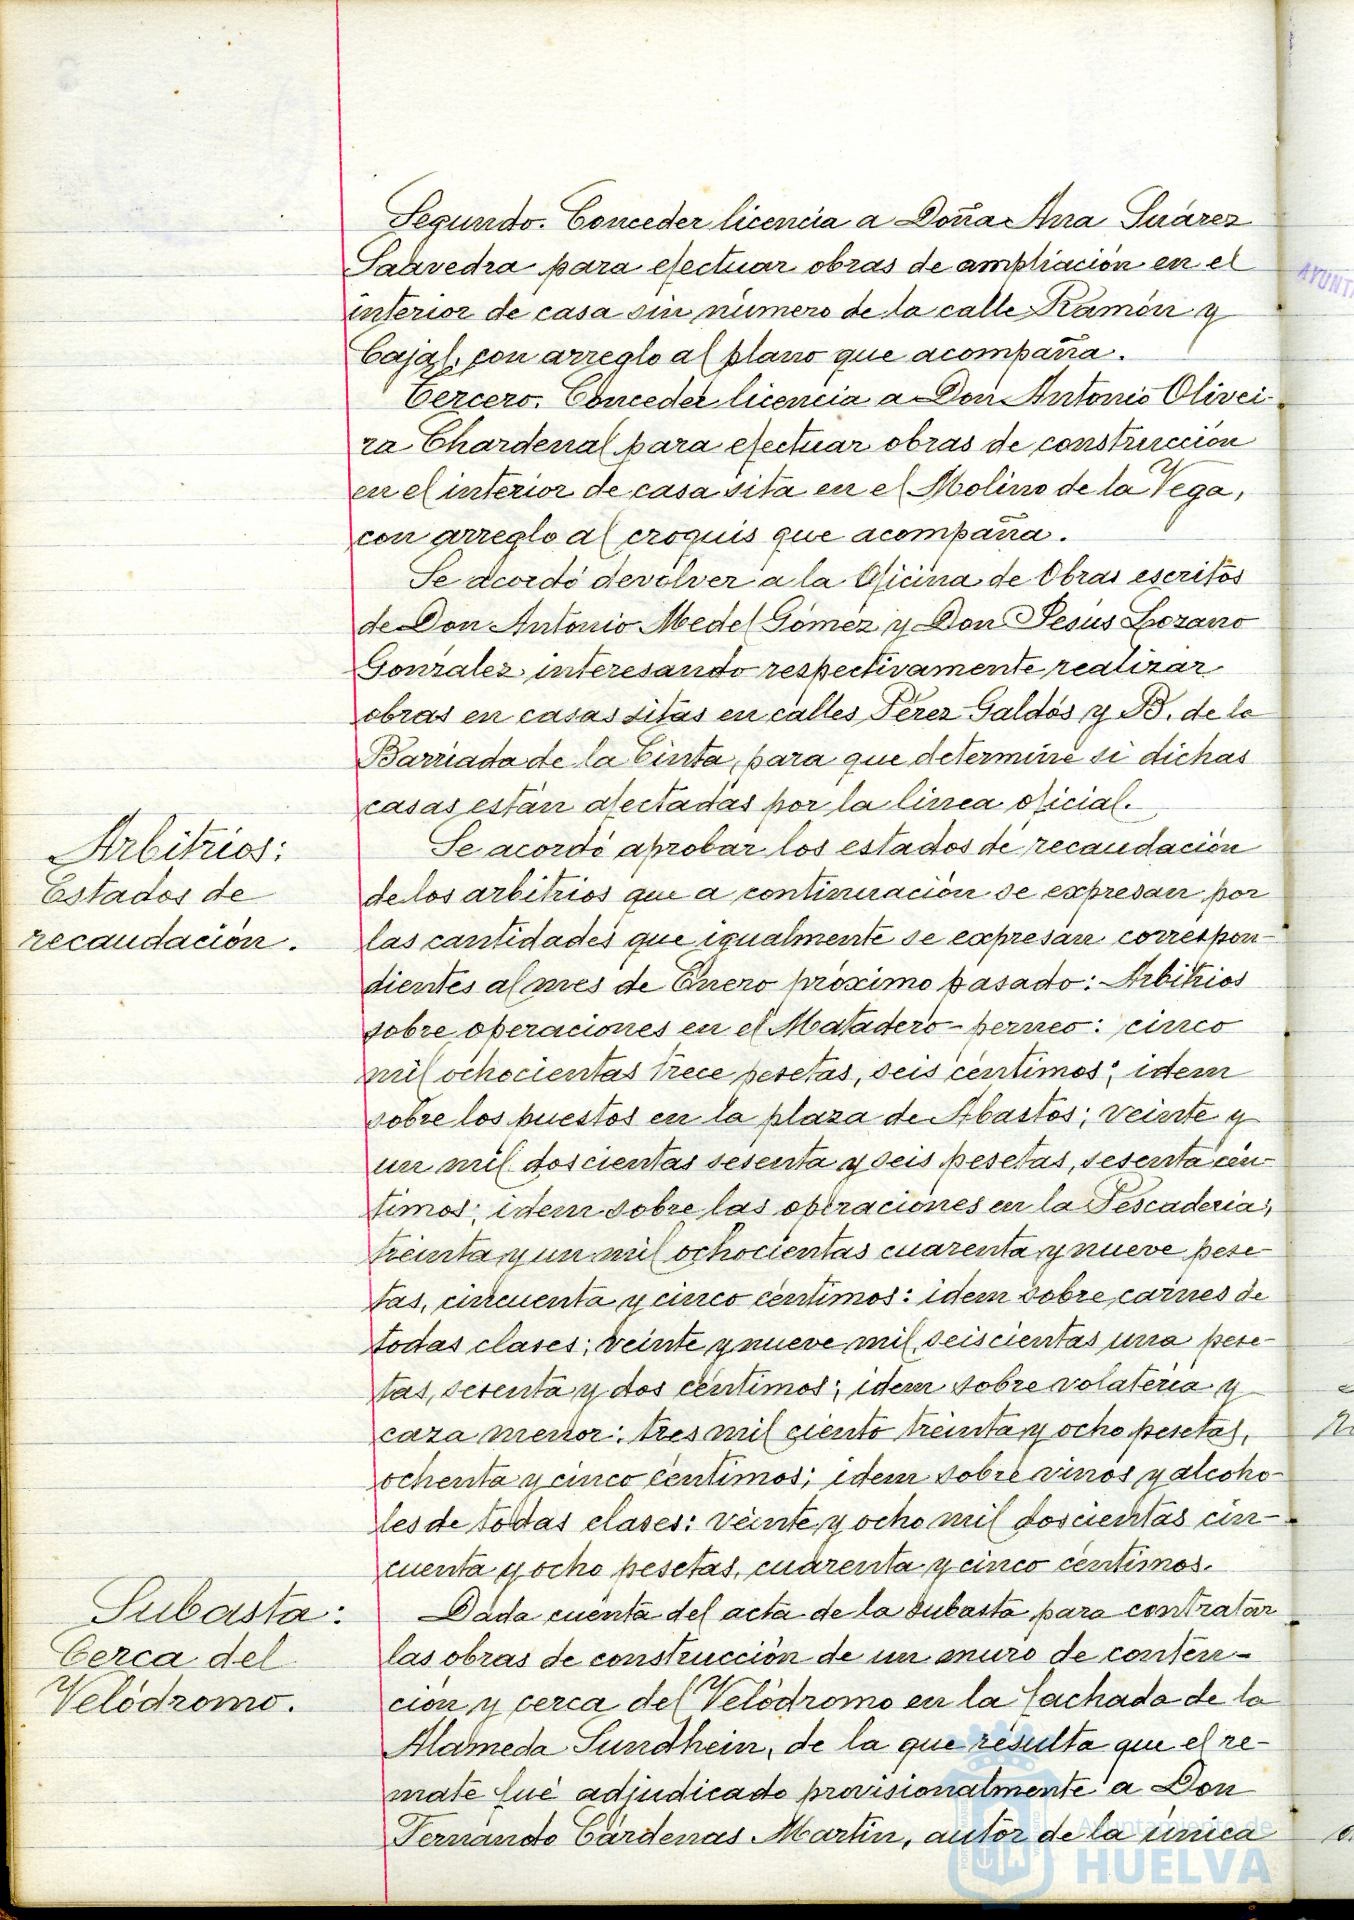 Segundo. Conceder licencia a Doña Ana Suárez
Saavedra para efectuar obras de ampliación en el
interior de casa sin número de la calle Ramón y
Cajal, con arreglo al plano que acompaña.
Tercero. Conceder licencia a Don Antonio Olivei-
ra Chardenal para efectuar obras de construcción
en el interior de casa sita en el Molino de la Vega,
con arreglo al croquis que acompaña.
Se acordó devolver a la Oficina de Obras escritos
de Don Antonio Medel Gómez y Don Jesús Lozano
González interesando respectivamente realizar
obras en casas sitas en calles Pérez Galdós y B. de la
Barriada de la Cinta, para que determine si dichas
casas están afectadas por la linea oficial.
Arbitrios:
Estados de
recaudación.
Se acordó aprobar los estados de recaudación
de los arbitrios que a continuación se expresan por
las cantidades que igualmente se expresan correspon-
dientes al mes de Enero próximo pasado: Arbitrios
sobre operaciones en el Matadero-perneo: cinco
mil ochocientas trece pesetas, seis céntimos; idem
sobre los puestos en la plaza de Abastos; veinte y
un mil doscientas sesenta y seis pesetas, sesenta cén-
timos; idem sobre las operaciones en la Pescaderia;
treinta y un mil ochocientas cuarenta y nueve pese-
tas, cincuenta y cinco céntimos: idem sobre carnes de
todas clases; veinte y nueve mil seiscientas una pese-
tas, sesenta y dos céntimos; idem sobre volatería y
caza menor: tres mil ciento treinta y ocho pesetas,
ochenta y cinco céntimos; idem sobre vinos y alcoho-
les de todas clases: veinte y ocho mil doscientas cin-
cuenta y ocho pesetas, cuarenta y cinco céntimos.
Subasta:
Cerca del
Velódromo.
Dada cuenta del acta de la subasta para contratar
las obras de construcción de un muro de conten-
ción y cerca del Velódromo en la fachada de la
Alameda Sundhein, de la que resulta que el re-
mate fué adjudicado provisionalmente a Don
Fernando Cárdenas Martin, autor de la única
Ayuntamiento de
HUELVA
AYUNT